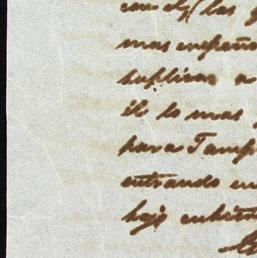 con el, las
mas empeño
suplicar a
él lo mas
para Tamp
entrando en
bajo cubier